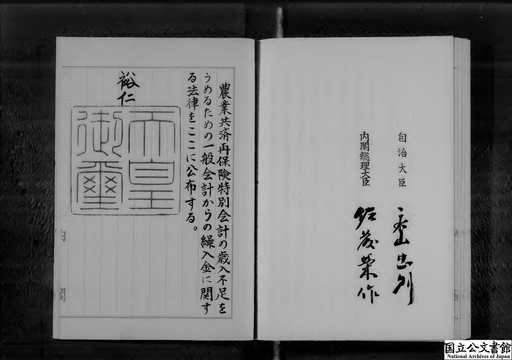 自治大臣 永山忠則
内閣総理大臣 佐藤榮作
農業共済再保険特別会計の歳入不足を
うめるための一般会計からの繰入金に関す
る法律をここに公布する。
裕仁
天皇
御璽
国立公文書館
National Archives of Japan